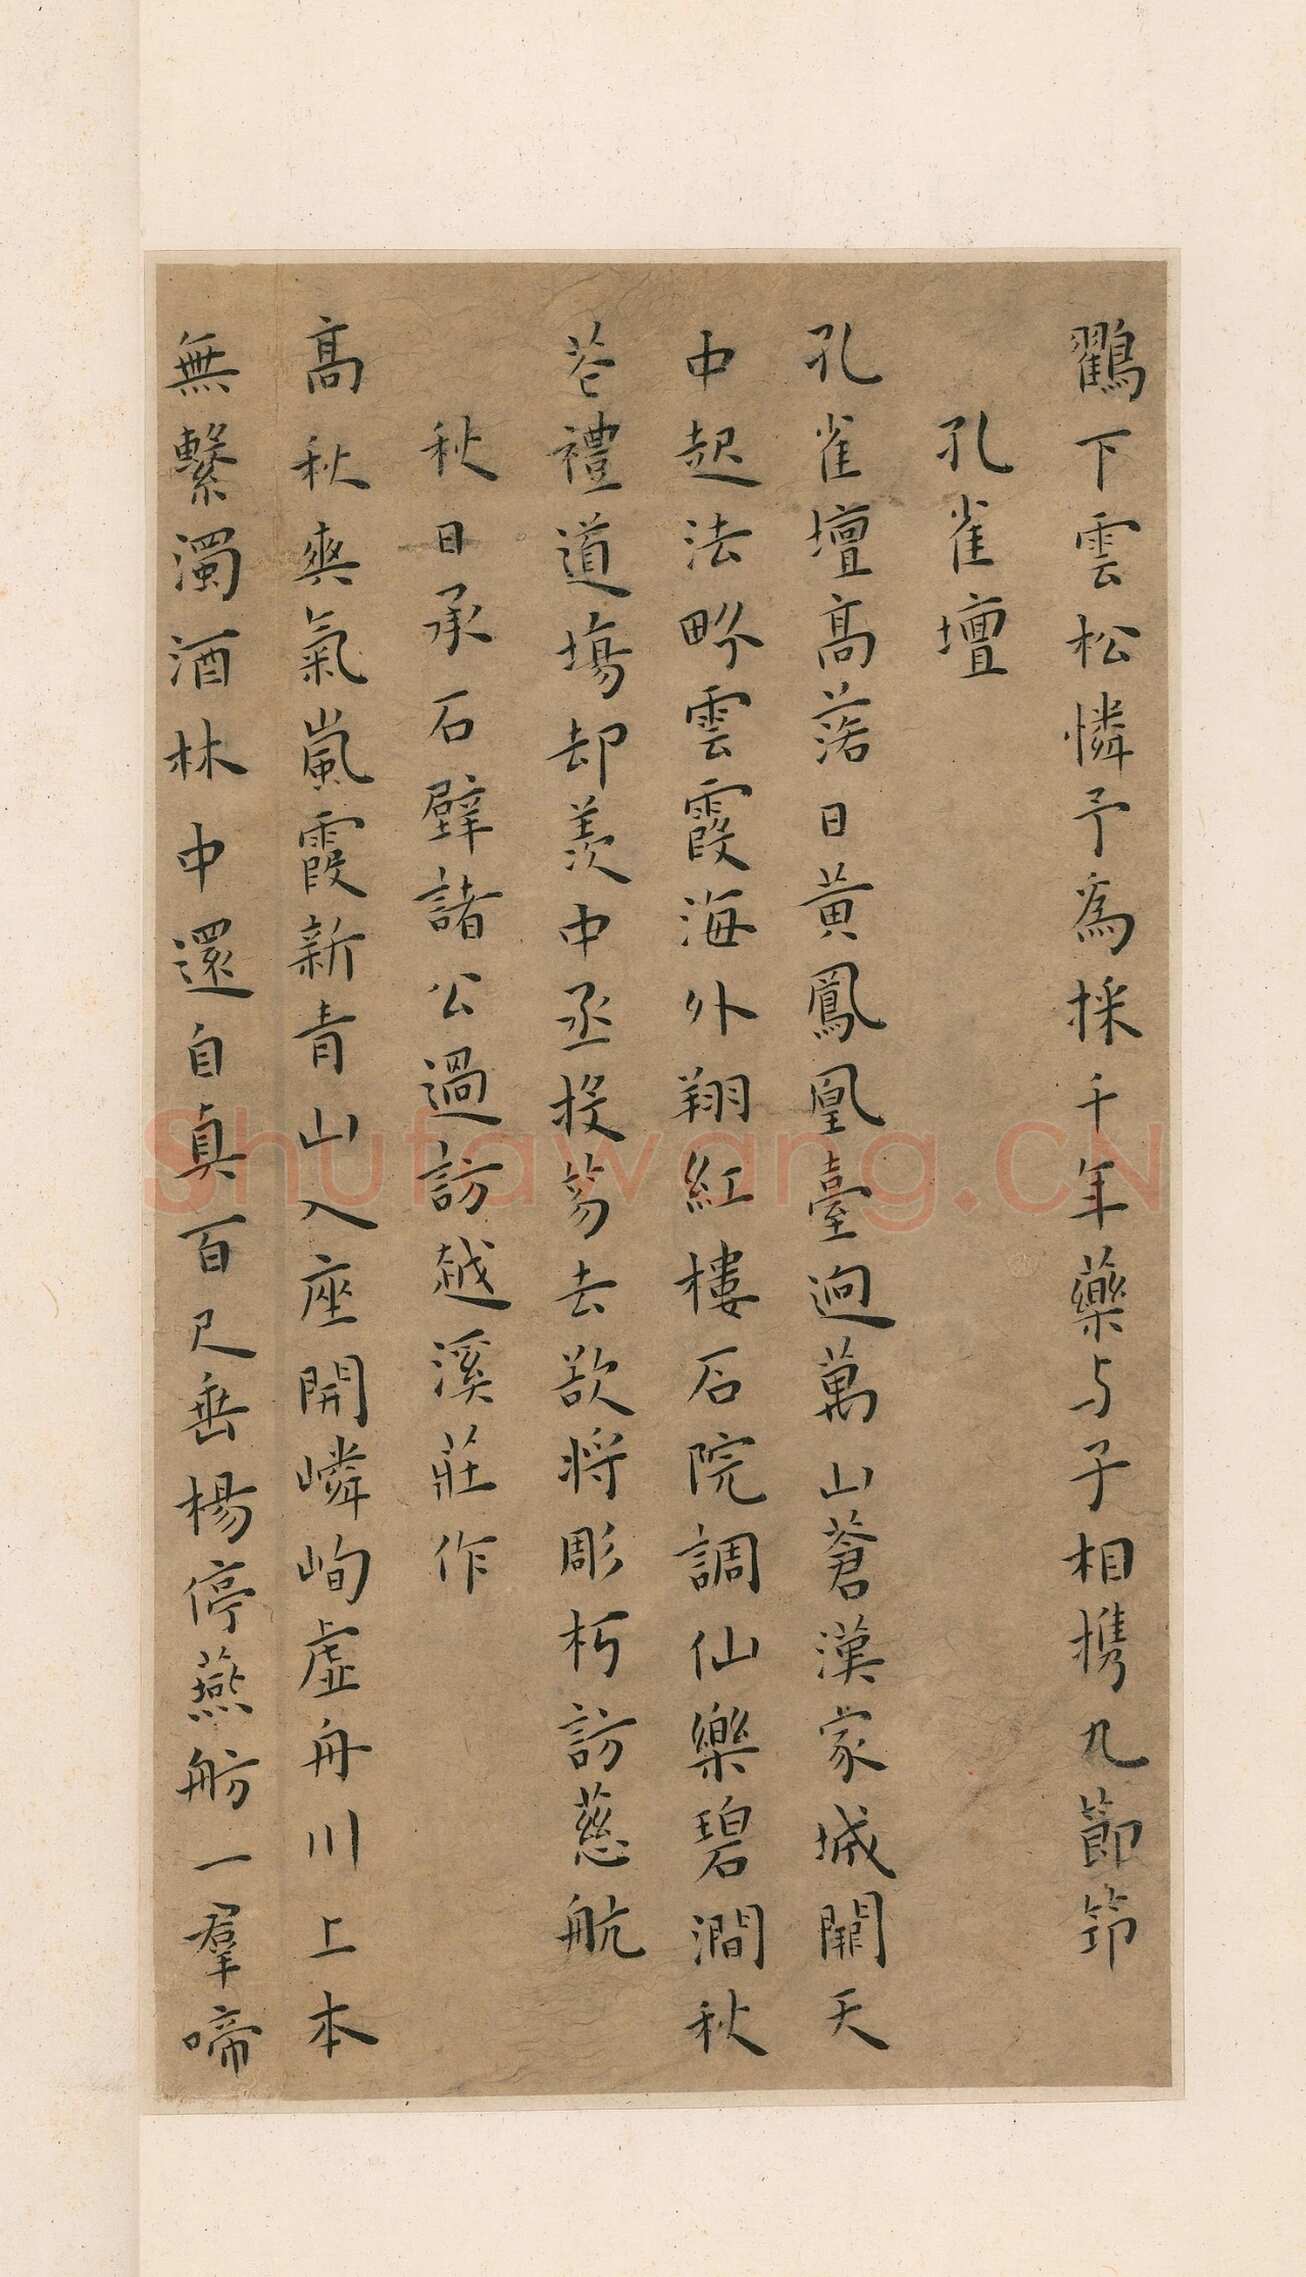 鸛下雲松憐予為採千年藥与子相携九節笻
孔雀壇
孔雀壇高落日黄鳳凰臺迥萬山蒼漢家城闕天
中起法界雲霞海外翔紅樓石院調仙樂碧澗秋
苍禮道場却羡中丞投笏去欲將彫朽訪慈航
秋日承石壁諸公過訪越溪莊作
高秋爽氣嵐霞新青山入座開嶙峋虛舟川上本
無繫濁酒林中還自真百尺垂楊停燕舫一羣啼
Shufawang.CN